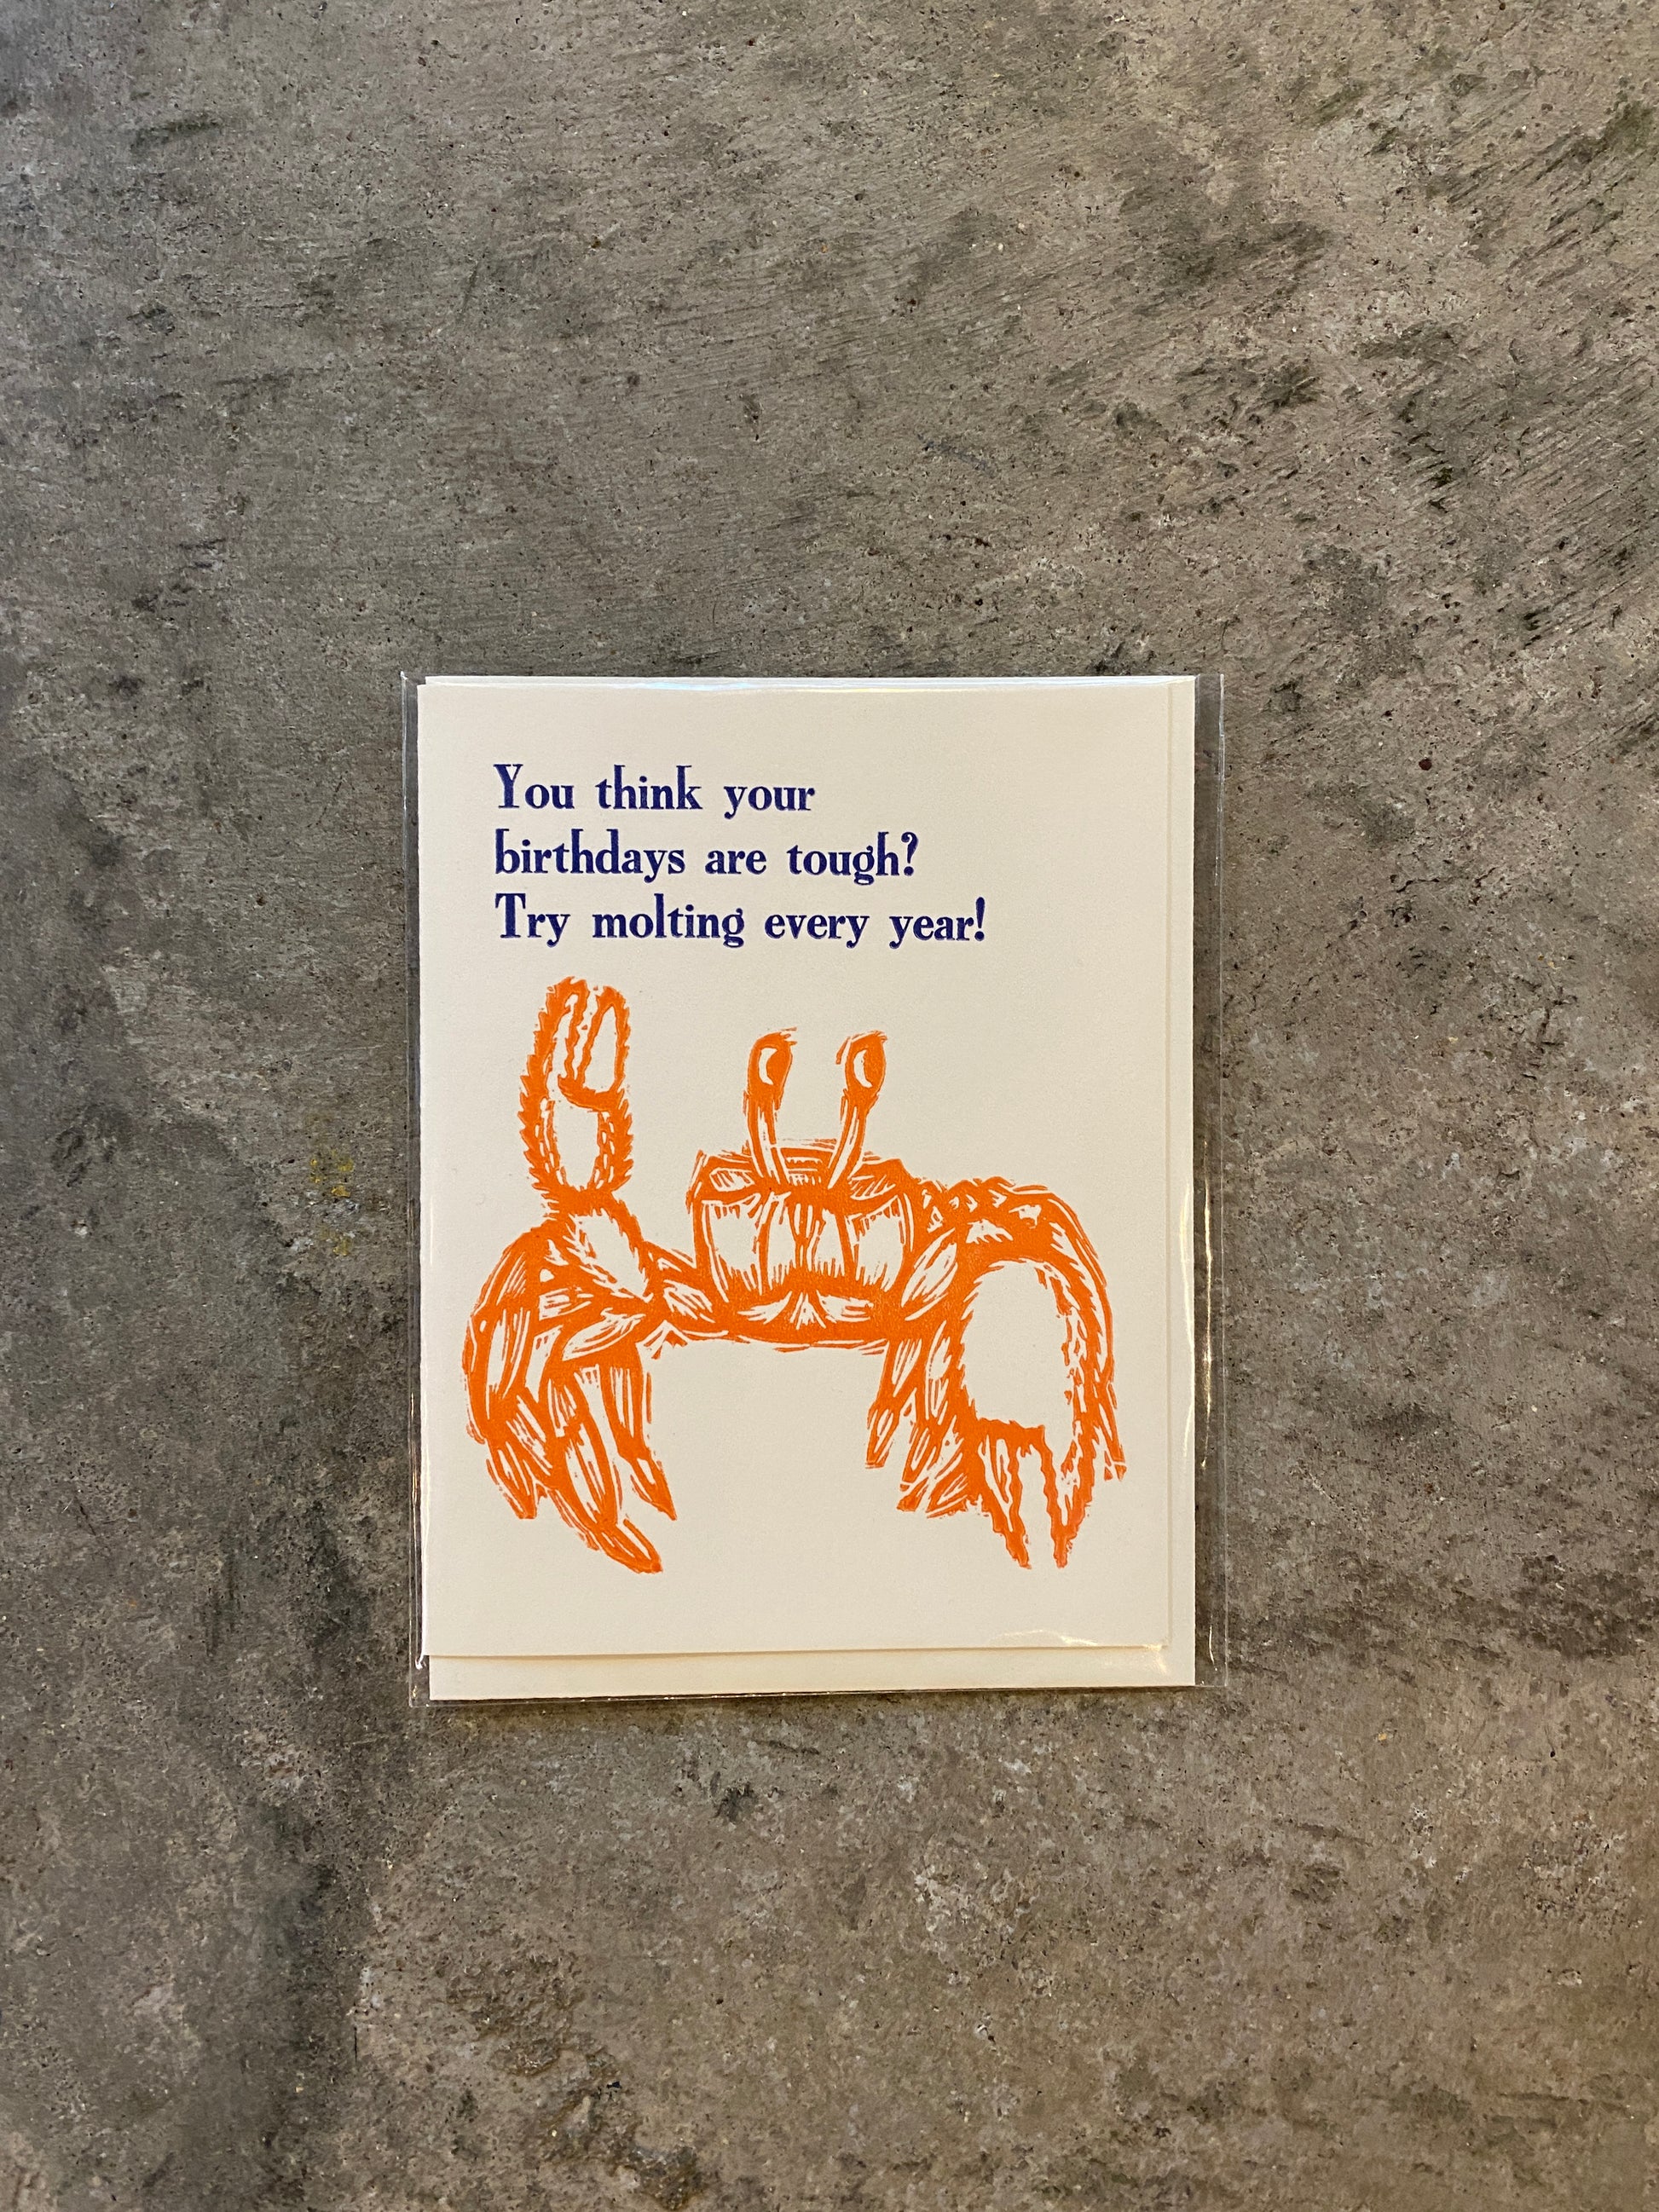 You think your
birthdays are tough?
Try molting every year!